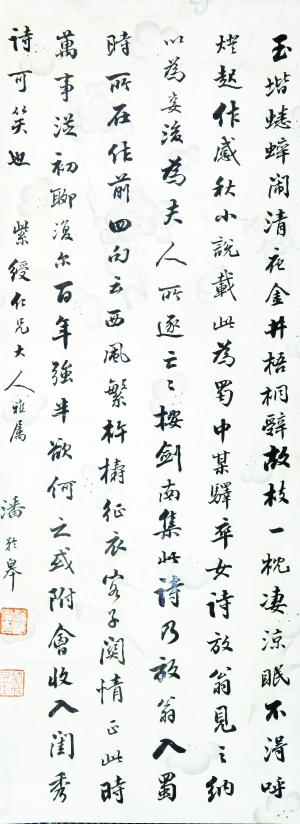 玉堦蟋蟀闹清夜金井梧桐辞故枝一枕凄涼眠不得呼
燈起作感秋小說載此為蜀中某驛卒女詩放翁見之納
以為妾後為夫人所逐云云按劍南集此詩乃放翁入蜀
時所在作前四句云西風繁杵擣征衣客子關情正此時
萬事從初聊復尔百年強半欲何之或附會收入閨秀
詩可笑也
紫綬仁兄大人雅属
潘齡皋